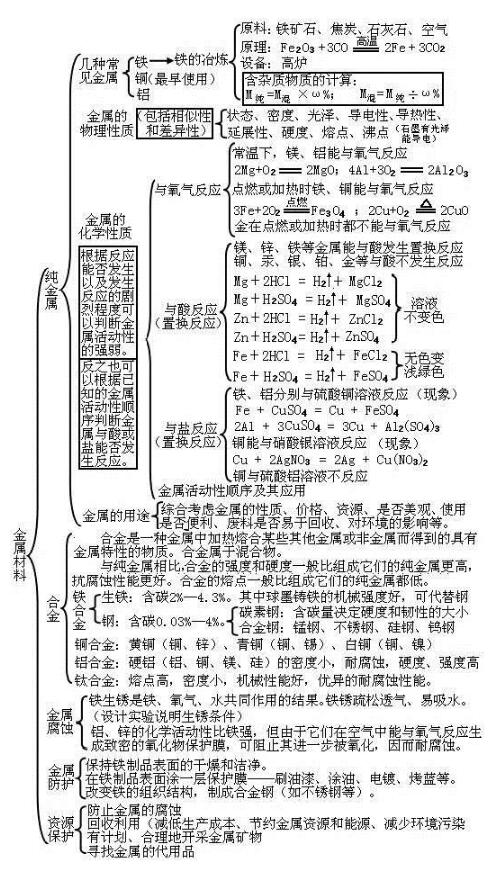 金属材料
纯金属
几种常
见金属
铁→铁的冶炼
原料：铁矿石、焦炭、石灰石、空气
原理：Fe₂O₃ +3CO 高温 2Fe + 3CO₂
设备：高炉
铜(最早使用)
铝
含杂质物质的计算：
M纯=M混 × ω%； M混=M纯 ÷ ω%
金属的
物理性质
(包括相似性
和差异性)
状态、密度、光泽、导电性、导热性、
延展性、硬度、熔点、沸点(石墨有光泽
能导电)
金属的
化学性质
根据反应
能否发生
以及发生
反应的剧
烈程度可
以判断金
属活动性
的强弱。
反之也可
以根据已
知的金属
活动性顺
序判断金
属与酸或
盐能否发
生反应。
与氧气反应
常温下，镁、铝能与氧气反应
2Mg+O₂ = 2MgO； 4Al+3O₂ = 2Al₂O₃
点燃或加热时铁、铜能与氧气反应
3Fe+2O₂ 点燃 Fe₃O₄ ；2Cu+O₂ △ 2CuO
金在点燃或加热时都不能与氧气反应
与酸反应
(置换反应)
镁、锌、铁等金属能与酸发生置换反应
铜、汞、银、铂、金等与酸不发生反应
Mg＋2HCl = H₂↑＋ MgCl₂
Mg＋H₂SO₄ = H₂↑＋ MgSO₄
Zn＋2HCl = H₂↑＋ ZnCl₂
Zn＋H₂SO₄= H₂↑＋ ZnSO₄
溶液
不变色
Fe＋2HCl = H₂↑＋ FeCl₂
Fe＋H₂SO₄ = H₂↑＋ FeSO₄
无色变
浅绿色
与盐反应
(置换反应)
铁、铝分别与硫酸铜溶液反应（现象）
Fe + CuSO₄ = Cu + FeSO₄
2Al + 3CuSO₄ = 3Cu + Al₂(SO₄)₃
铜能与硝酸银溶液反应（现象）
Cu + 2AgNO₃ = 2Ag + Cu(NO₃)₂
铜与硫酸铝溶液不反应
金属活动性顺序及其应用
金属的用途
综合考虑金属的性质、价格、资源、是否美观、使用
是否便利、废料是否易于回收、对环境的影响等。
合金
合金是一种金属中加热熔合某些其他金属或非金属而得到的具有
金属特性的物质。合金属于混合物。
与纯金属相比,合金的强度和硬度一般比组成它们的纯金属更高,
抗腐蚀性能更好。合金的熔点一般比组成它们的纯金属都低。
铁合金
生铁：含碳2%—4.3%。其中球墨铸铁的机械强度好，可代替钢
钢：含碳0.03%—4%。
碳素钢：含碳量决定硬度和韧性的大小
合金钢：锰钢、不锈钢、硅钢、钨钢
铜合金：黄铜（铜、锌）、青铜（铜、锡）、白铜（铜、镍）
铝合金：硬铝（铝、铜、镁、硅）的密度小，耐腐蚀，硬度、强度高
钛合金：熔点高，密度小，机械性能好，优异的耐腐蚀性能。
金属
腐蚀
铁生锈是铁、氧气、水共同作用的结果。铁锈疏松透气、易吸水。
（设计实验说明生锈条件）
铝、锌的化学活动性比铁强，但由于它们在空气中能与氧气反应生
成致密的氧化物保护膜，可阻止其进一步被氧化，因而耐腐蚀。
金属
防护
保持铁制品表面的干燥和洁净。
在铁制品表面涂一层保护膜——刷油漆、涂油、电镀、烤蓝等。
改变铁的组织结构，制成合金钢（如不锈钢等）。
资源
保护
防止金属的腐蚀
回收利用（减低生产成本、节约金属资源和能源、减少环境污染
有计划、合理地开采金属矿物
寻找金属的代用品